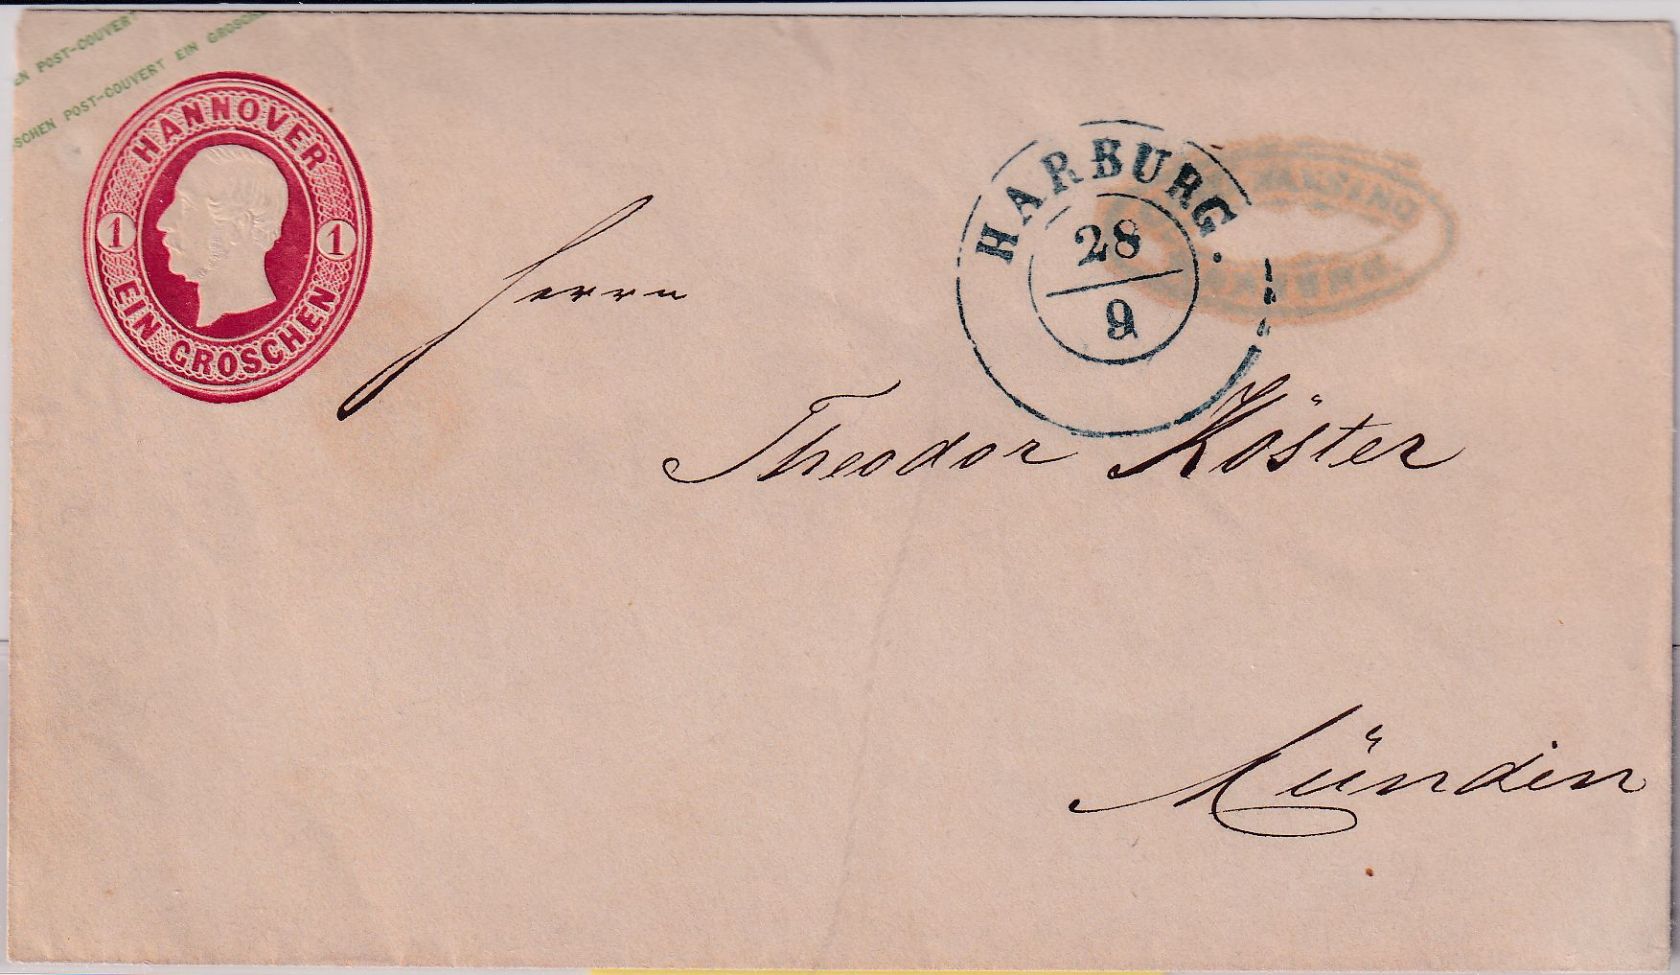 POST-COUVERT
SCHEN POST-COUVERT EIN GROSCHEN
HANNOVER
1 1
EIN GROSCHEN
HARBURG.
28
9
HARBURG
Herrn
Theodor Köster
Münden